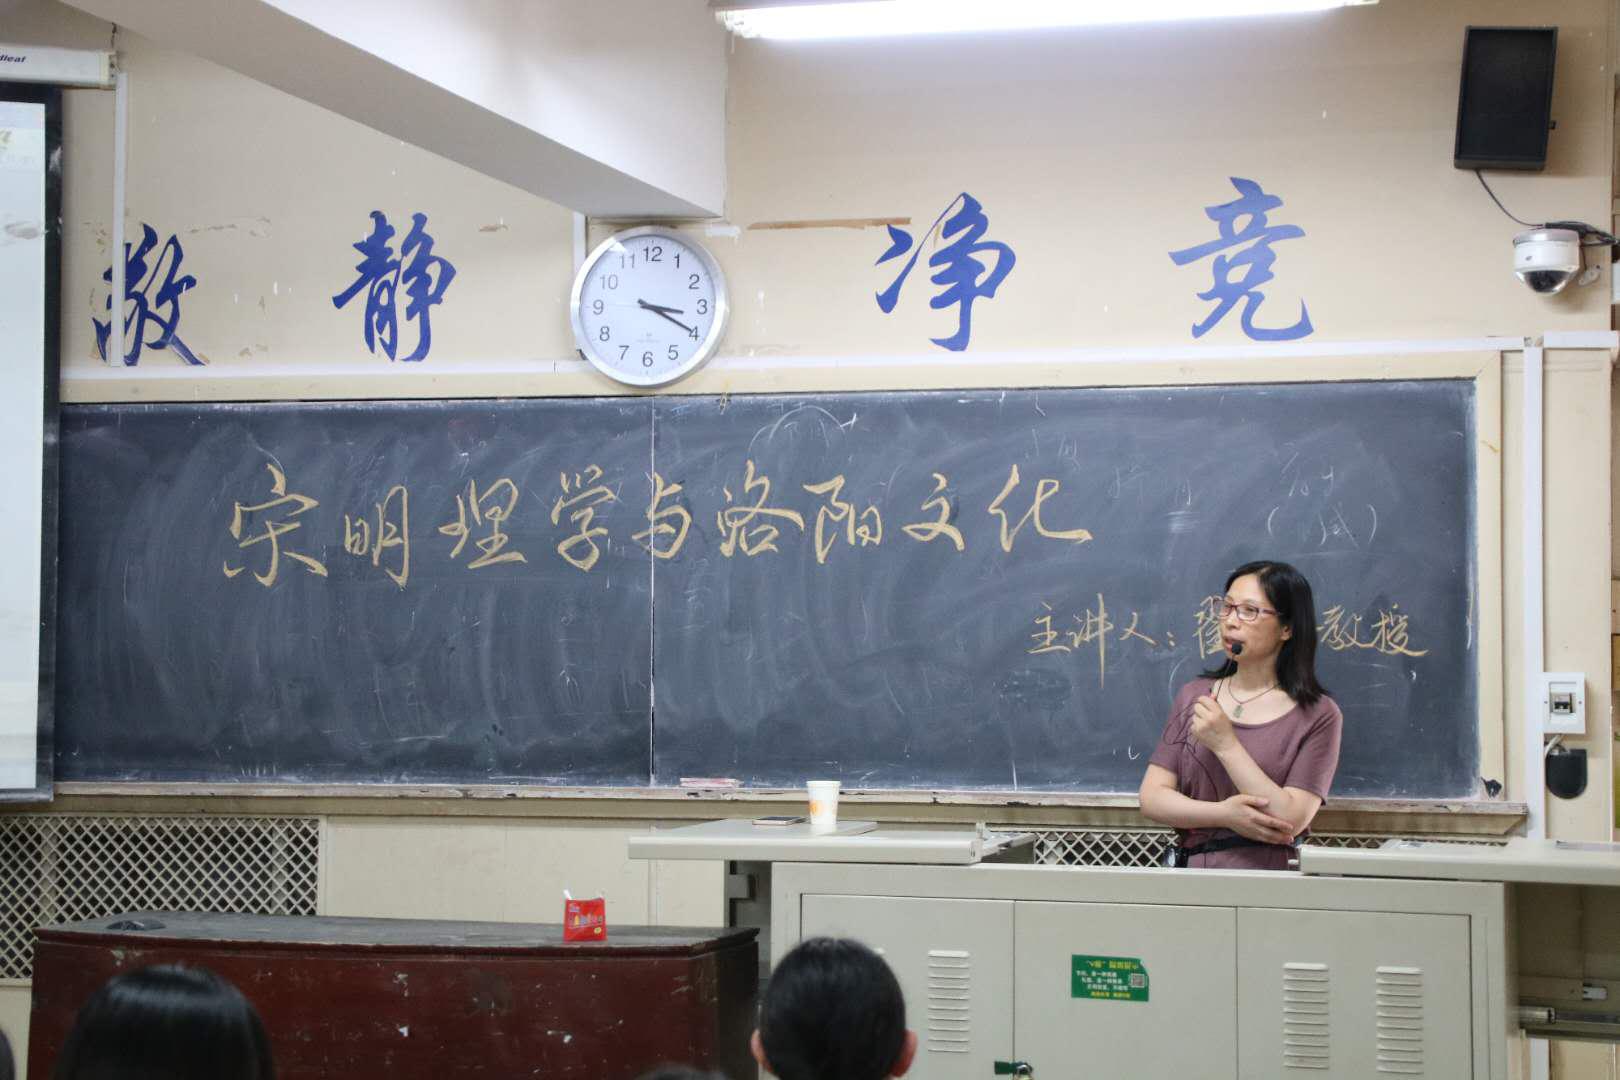 敬 静 净 竞
宋明理学与洛阳文化
主讲人：翟 教授
12
1
2
3
4
5
6
7
8
9
10
11